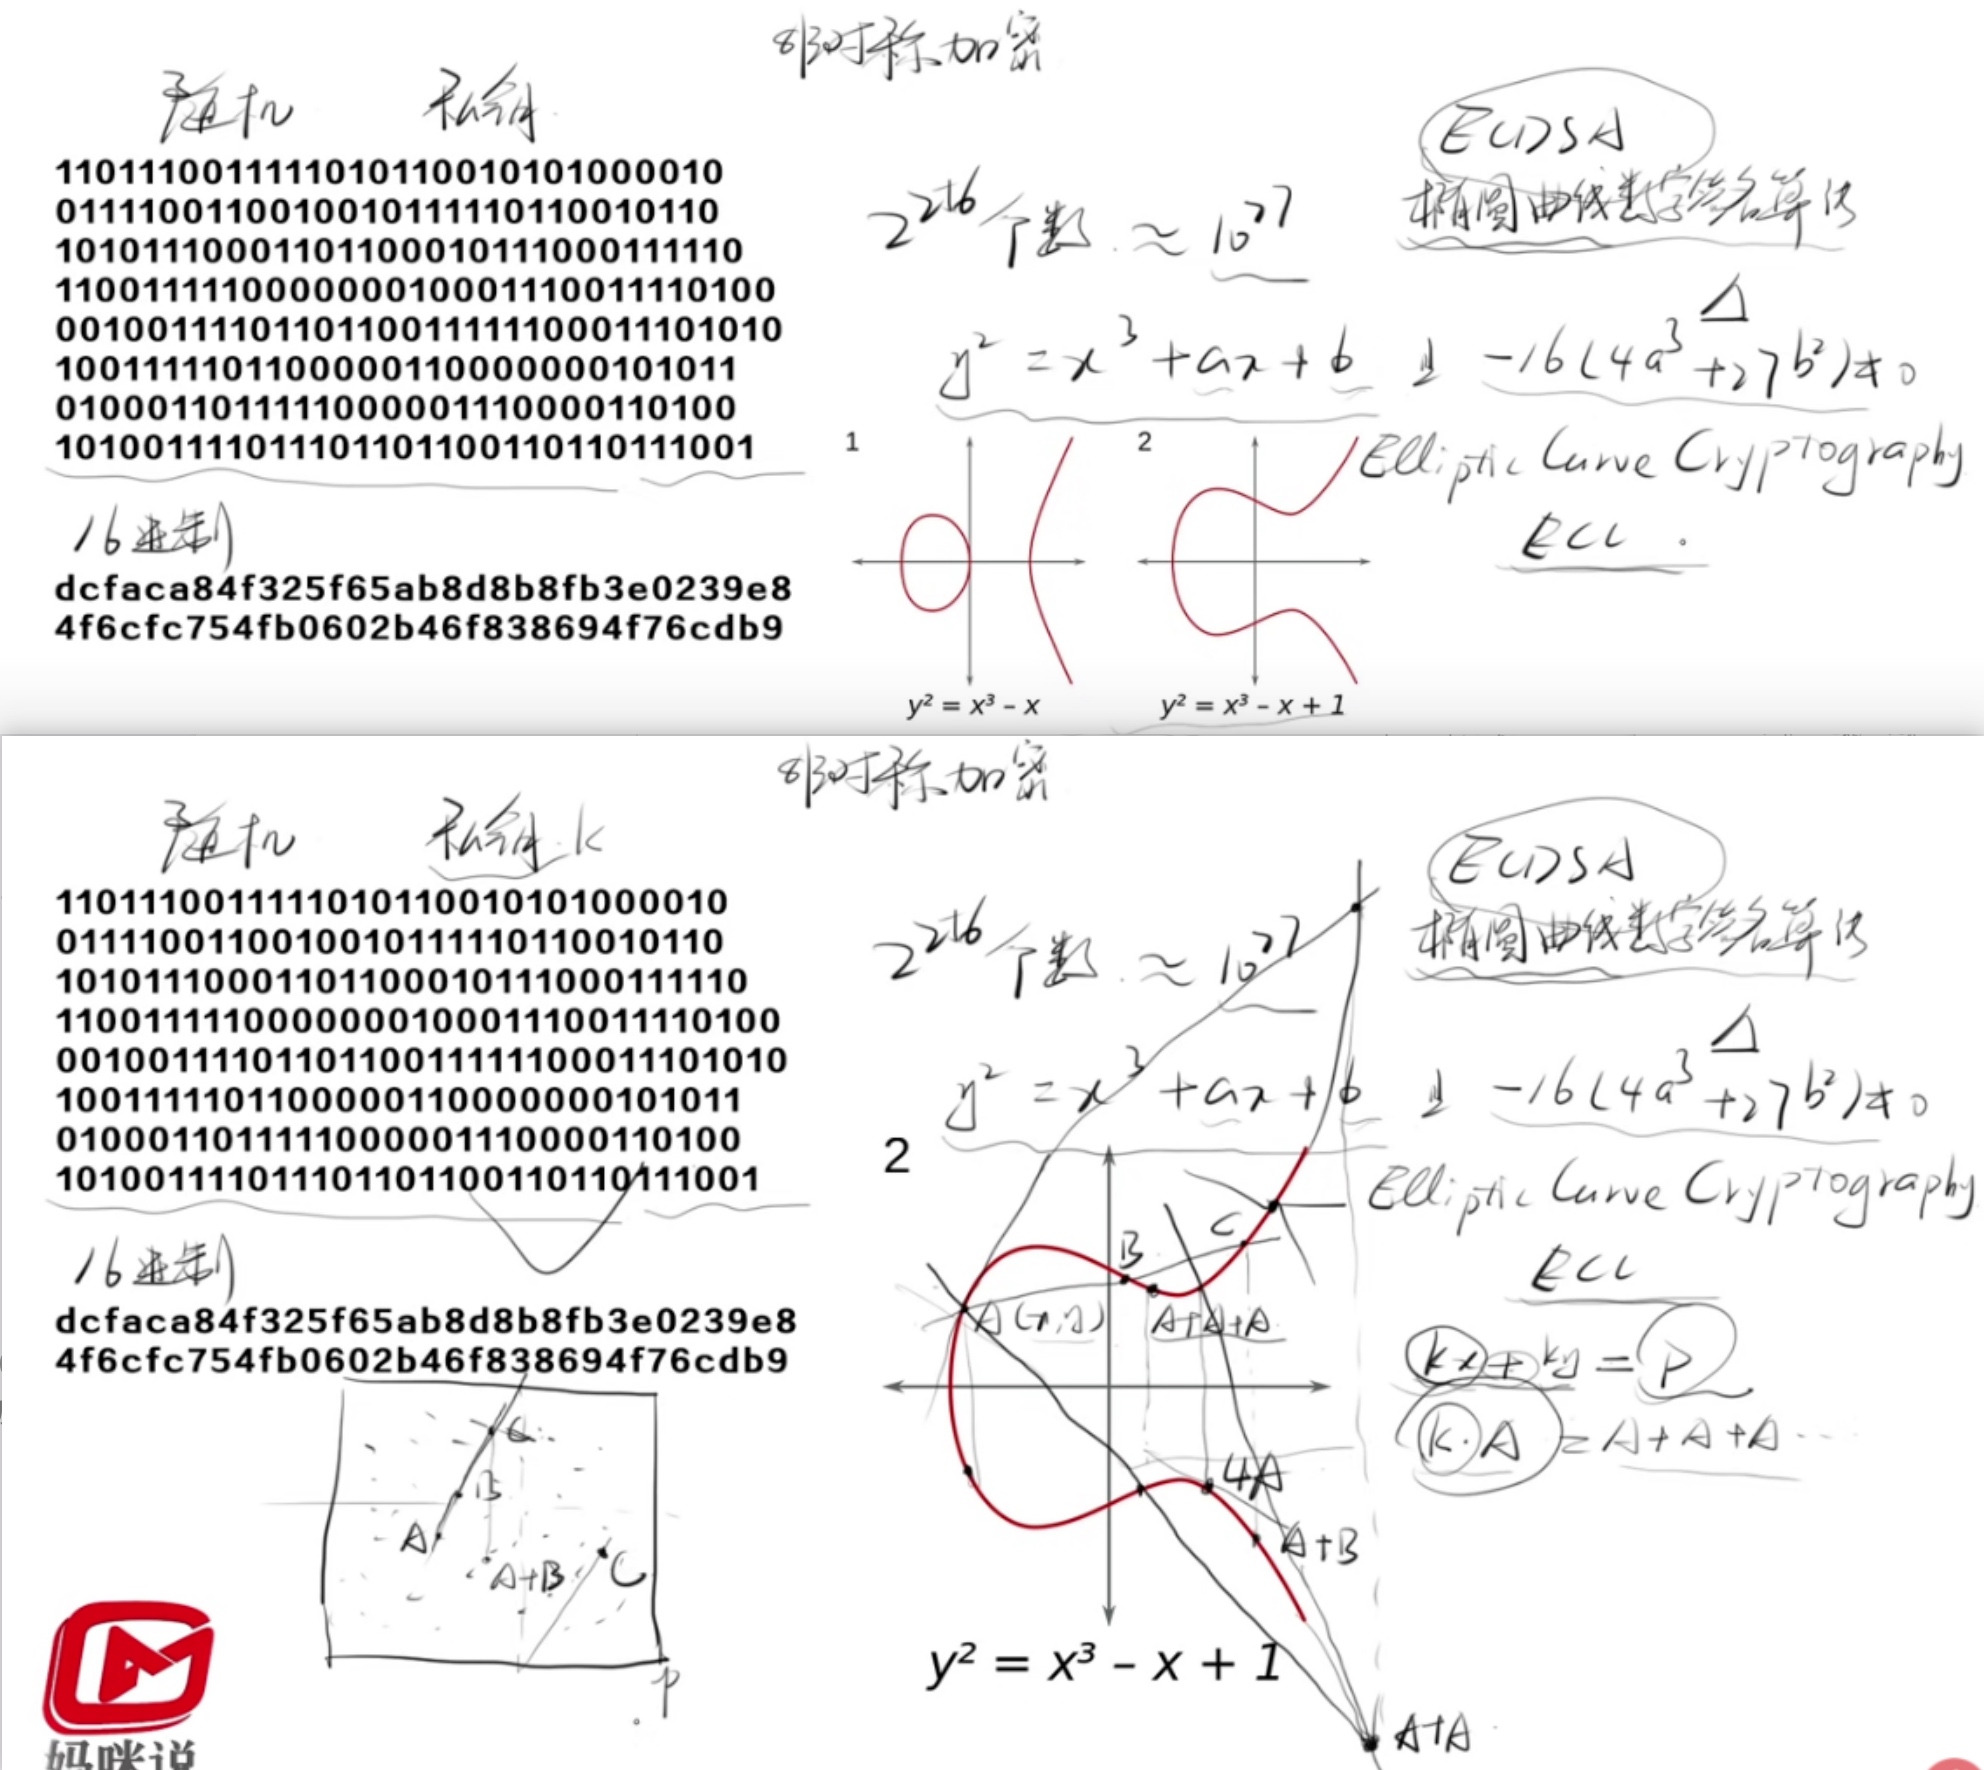 非对称加密
随机 私钥
1101110011111010110010101000010
0111100110010010111110110010110
10101110001101100010111000111110
110011111000000010001110011110100
001001111011011001111110001110 1010
1001111101100000110000000101011
0100011011111000001110000110100
10100111101110110110011011011 1001
16进制
dcfaca84f325f65ab8d8b8fb3e0239e8
4f6cfc754fb0602b46f838694f76cdb9
2^256个数 ≈ 10^77
ECDSA
椭圆曲线数字签名算法
Δ
y² = x³ + ax + b 且 -16(4a³+27b²)≠0
Elliptic Curve Cryptography
ECC
1
2
y² = x³ – x
y² = x³ – x + 1
非对称加密
随机 私钥 k
1101110011111010110010101000010
0111100110010010111110110010110
10101110001101100010111000111110
110011111000000010001110011110100
001001111011011001111110001110 1010
1001111101100000110000000101011
0100011011111000001110000110100
10100111101110110110011011011 1001
16进制
dcfaca84f325f65ab8d8b8fb3e0239e8
4f6cfc754fb0602b46f838694f76cdb9
2^256个数 ≈ 10^77
ECDSA
椭圆曲线数字签名算法
Δ
y² = x³ + ax + b 且 -16(4a³+27b²)≠0
Elliptic Curve Cryptography
ECC
2
B
C
A(x,y)
A+A+A
4A
A+B
A+A
kx + ky = P
k·A = A+A+A···
y² = x³ – x + 1
B
A
A+B
C
P
妈咪说